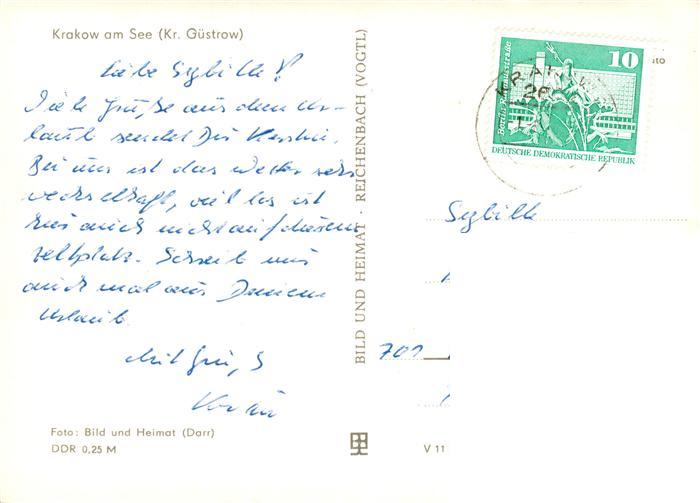 Krakow am See (Kr. Güstrow)
Liebe Sybille!
Viele Grüße aus dem Ur-
laub sendet Dir Kerstin.
Bei uns ist das Wetter sehr
viel los ist
hier auch nicht auf diesem
Zeltplatz. Schreib uns
auch mal aus Deinem
Urlaub.
Foto: Bild und Heimat (Darr)
DDR 0,25 M
BILD UND HEIMAT · REICHENBACH (VOGTL)
V 11
10
DEUTSCHE DEMOKRATISCHE REPUBLIK
Sybille
701